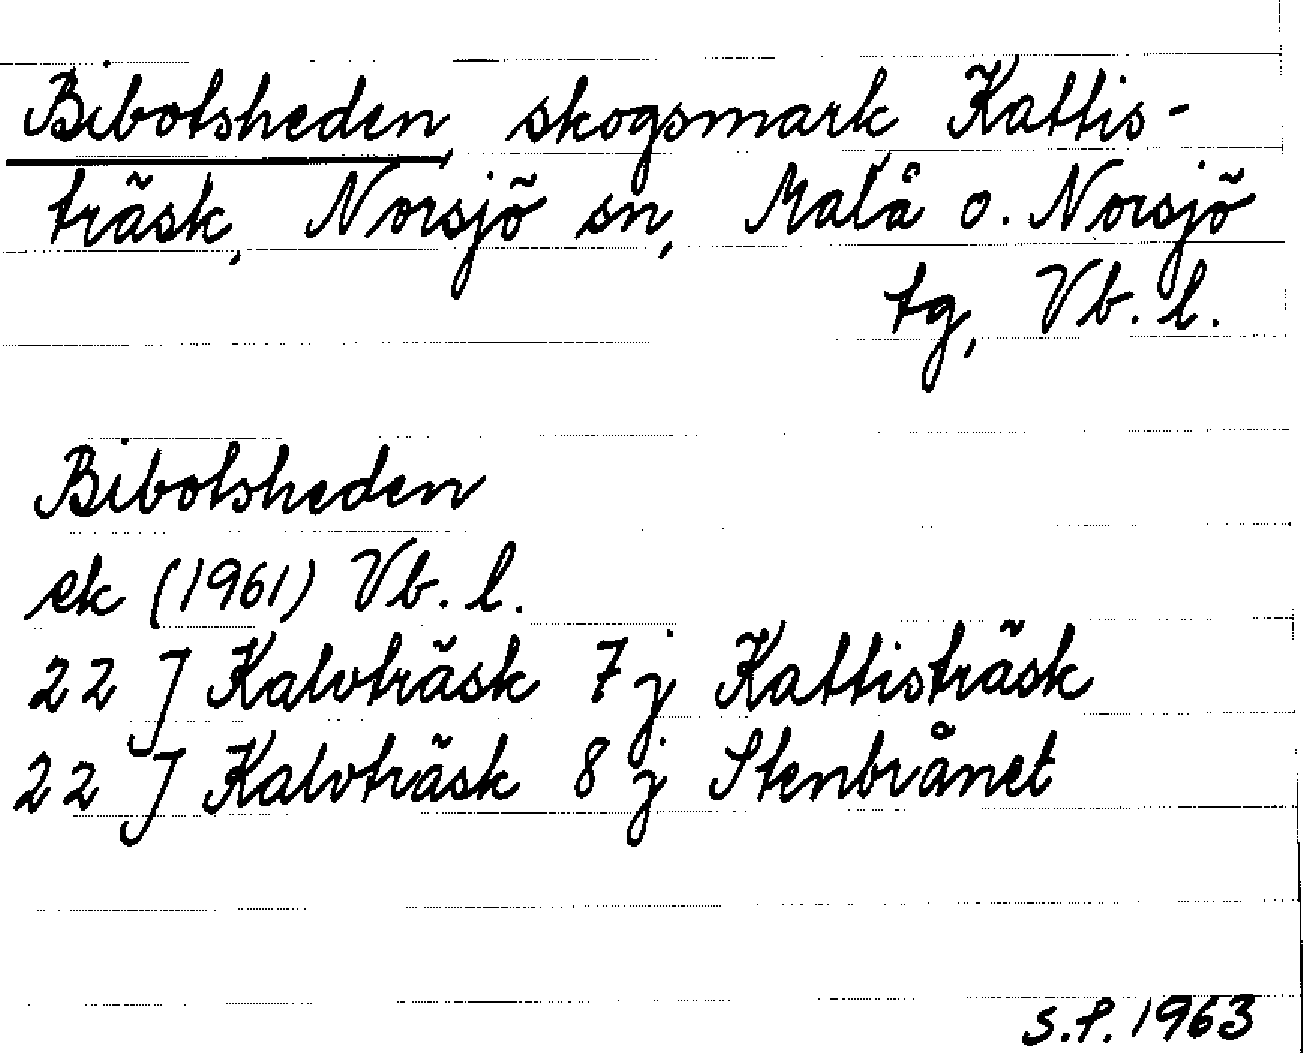 Bibolsheden, skogsmark Kattis-
träsk, Norsjö sn, Malå o. Norsjö
tg, Vb. l.
Bibolsheden
ek (1961) Vb. l.
22 J Kalvträsk 7 j Kattisträsk
22 J Kalvträsk 8 j Stenbrånet
S.P. 1963